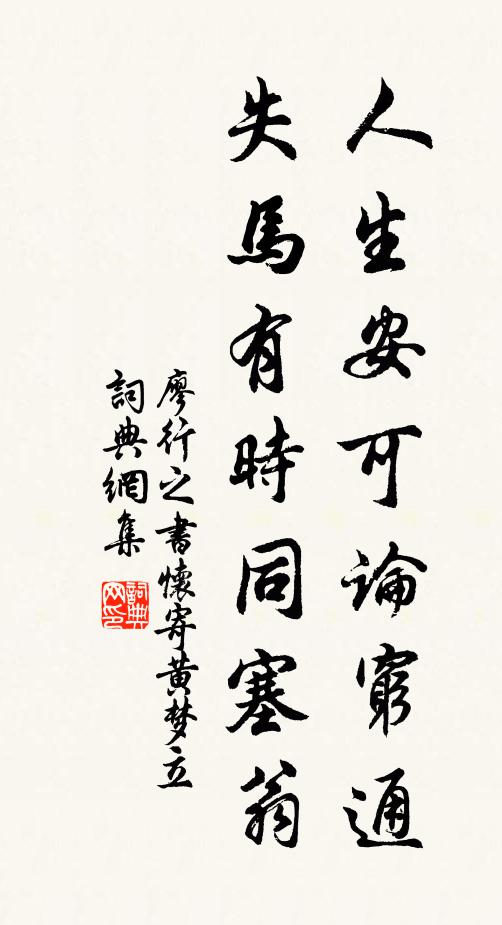 人生安可論窮通
失馬有時同塞翁
廖行之書懷寄黄梦立
詞典網集
詞典网印